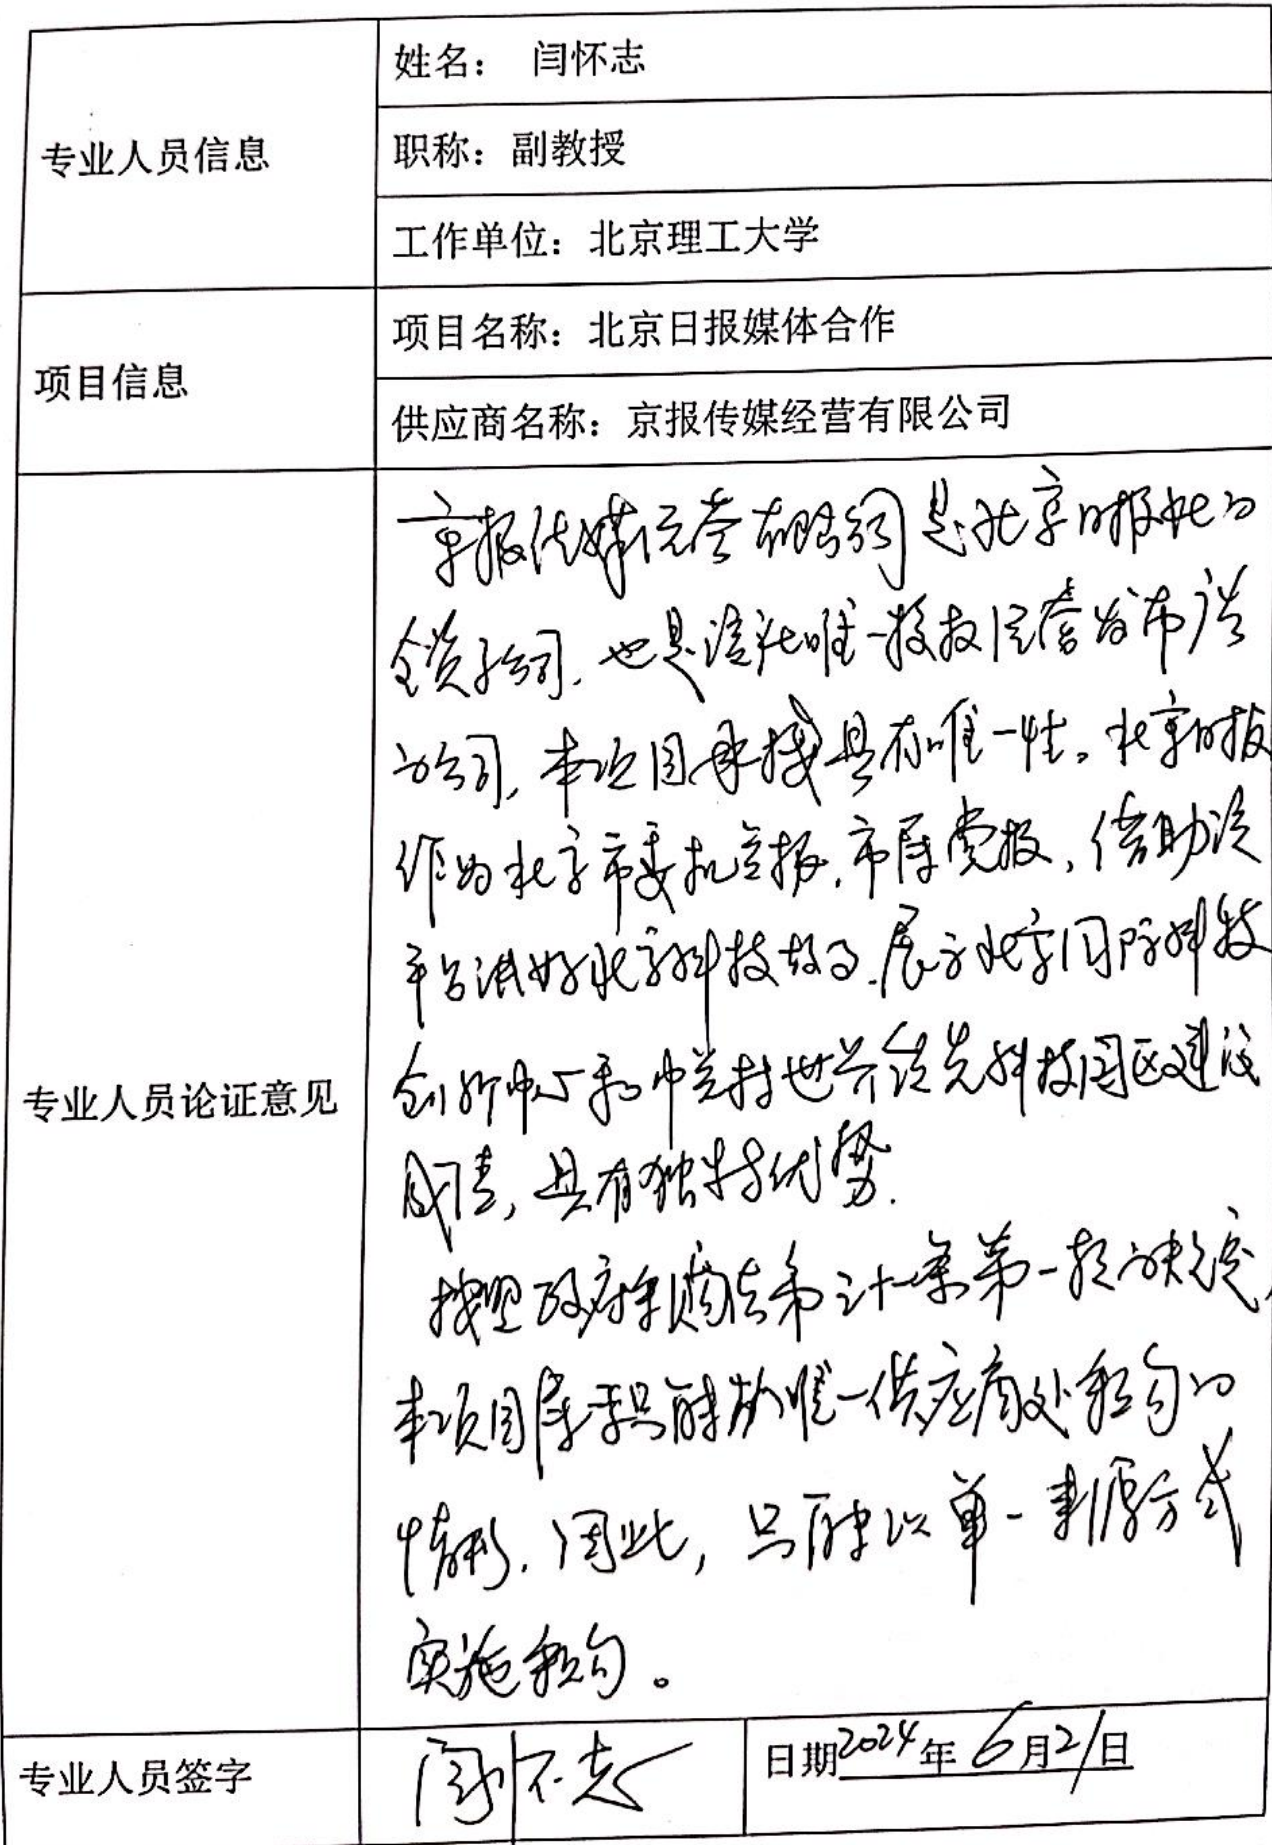 专业人员信息
姓名： 闫怀志
职称：副教授
工作单位：北京理工大学
项目信息
项目名称：北京日报媒体合作
供应商名称：京报传媒经营有限公司
专业人员论证意见
京报传媒经营有限公司是北京日报社的
全资子公司，也是该社唯一授权经营发布广告
的公司，本项目承接具有唯一性。北京日报
作为北京市委机关报，市属党报，借助该
平台讲好北京科技故事，展示北京国际科技
创新中心和中关村世界领先科技园区建设
成绩，具有独特优势。
按照政府采购法第三十一条第一款的规定，
本项目属于只能从唯一供应商处采购的
情形。因此，只能以单一来源方式
实施采购。
专业人员签字
闫怀志
日期2024年6月21日